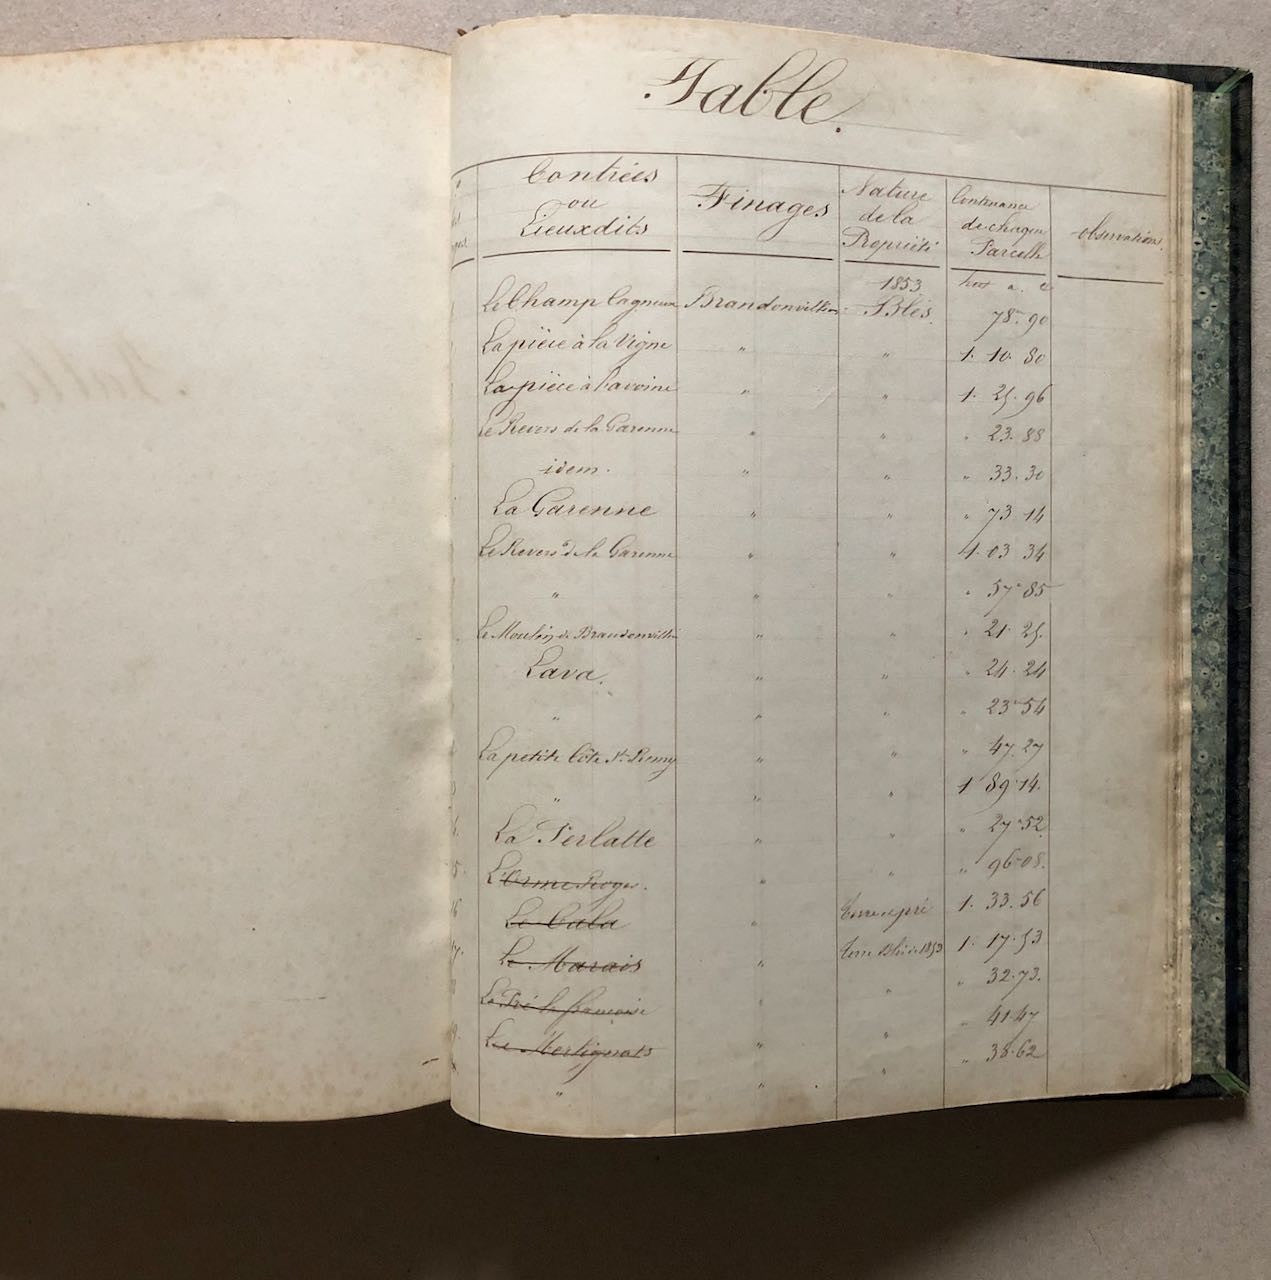 Table.
Contrées
ou
Lieuxdits
Finages
Nature
de la
Propriété
Contenance
de chaque
Parcelle
Observations.
1853 hect a. c
Le Champ Cagneux Brandonvillers Blés. 78. 90
La pièce à la Vigne " " 1. 10. 80
La pièce à l'avoine " " 1. 25. 96
Le Revers de la Garenne " " " 23. 88
idem. " " " 33. 30
La Garenne " " " 73 14
Le Revers de la Garenne " " 1. 03 34
" " " " 57. 85
Le Moulin de Brandonvillers " " " 21. 25.
Lava. " " " 24. 24
" " " " 23. 54
La petite Côte St. Remy " " " 47. 27
" " " 1 89. 14.
La Perlatte " " " 27. 52.
L'Orme Roger. " " " 96. 08.
Le Cala " Terre et pré 1. 33. 56
Le Marais " Terre Blé de 1853 1. 17. 53
Le Pré la " " " 32. 73.
" " " 41. 47
" " " " 38. 62